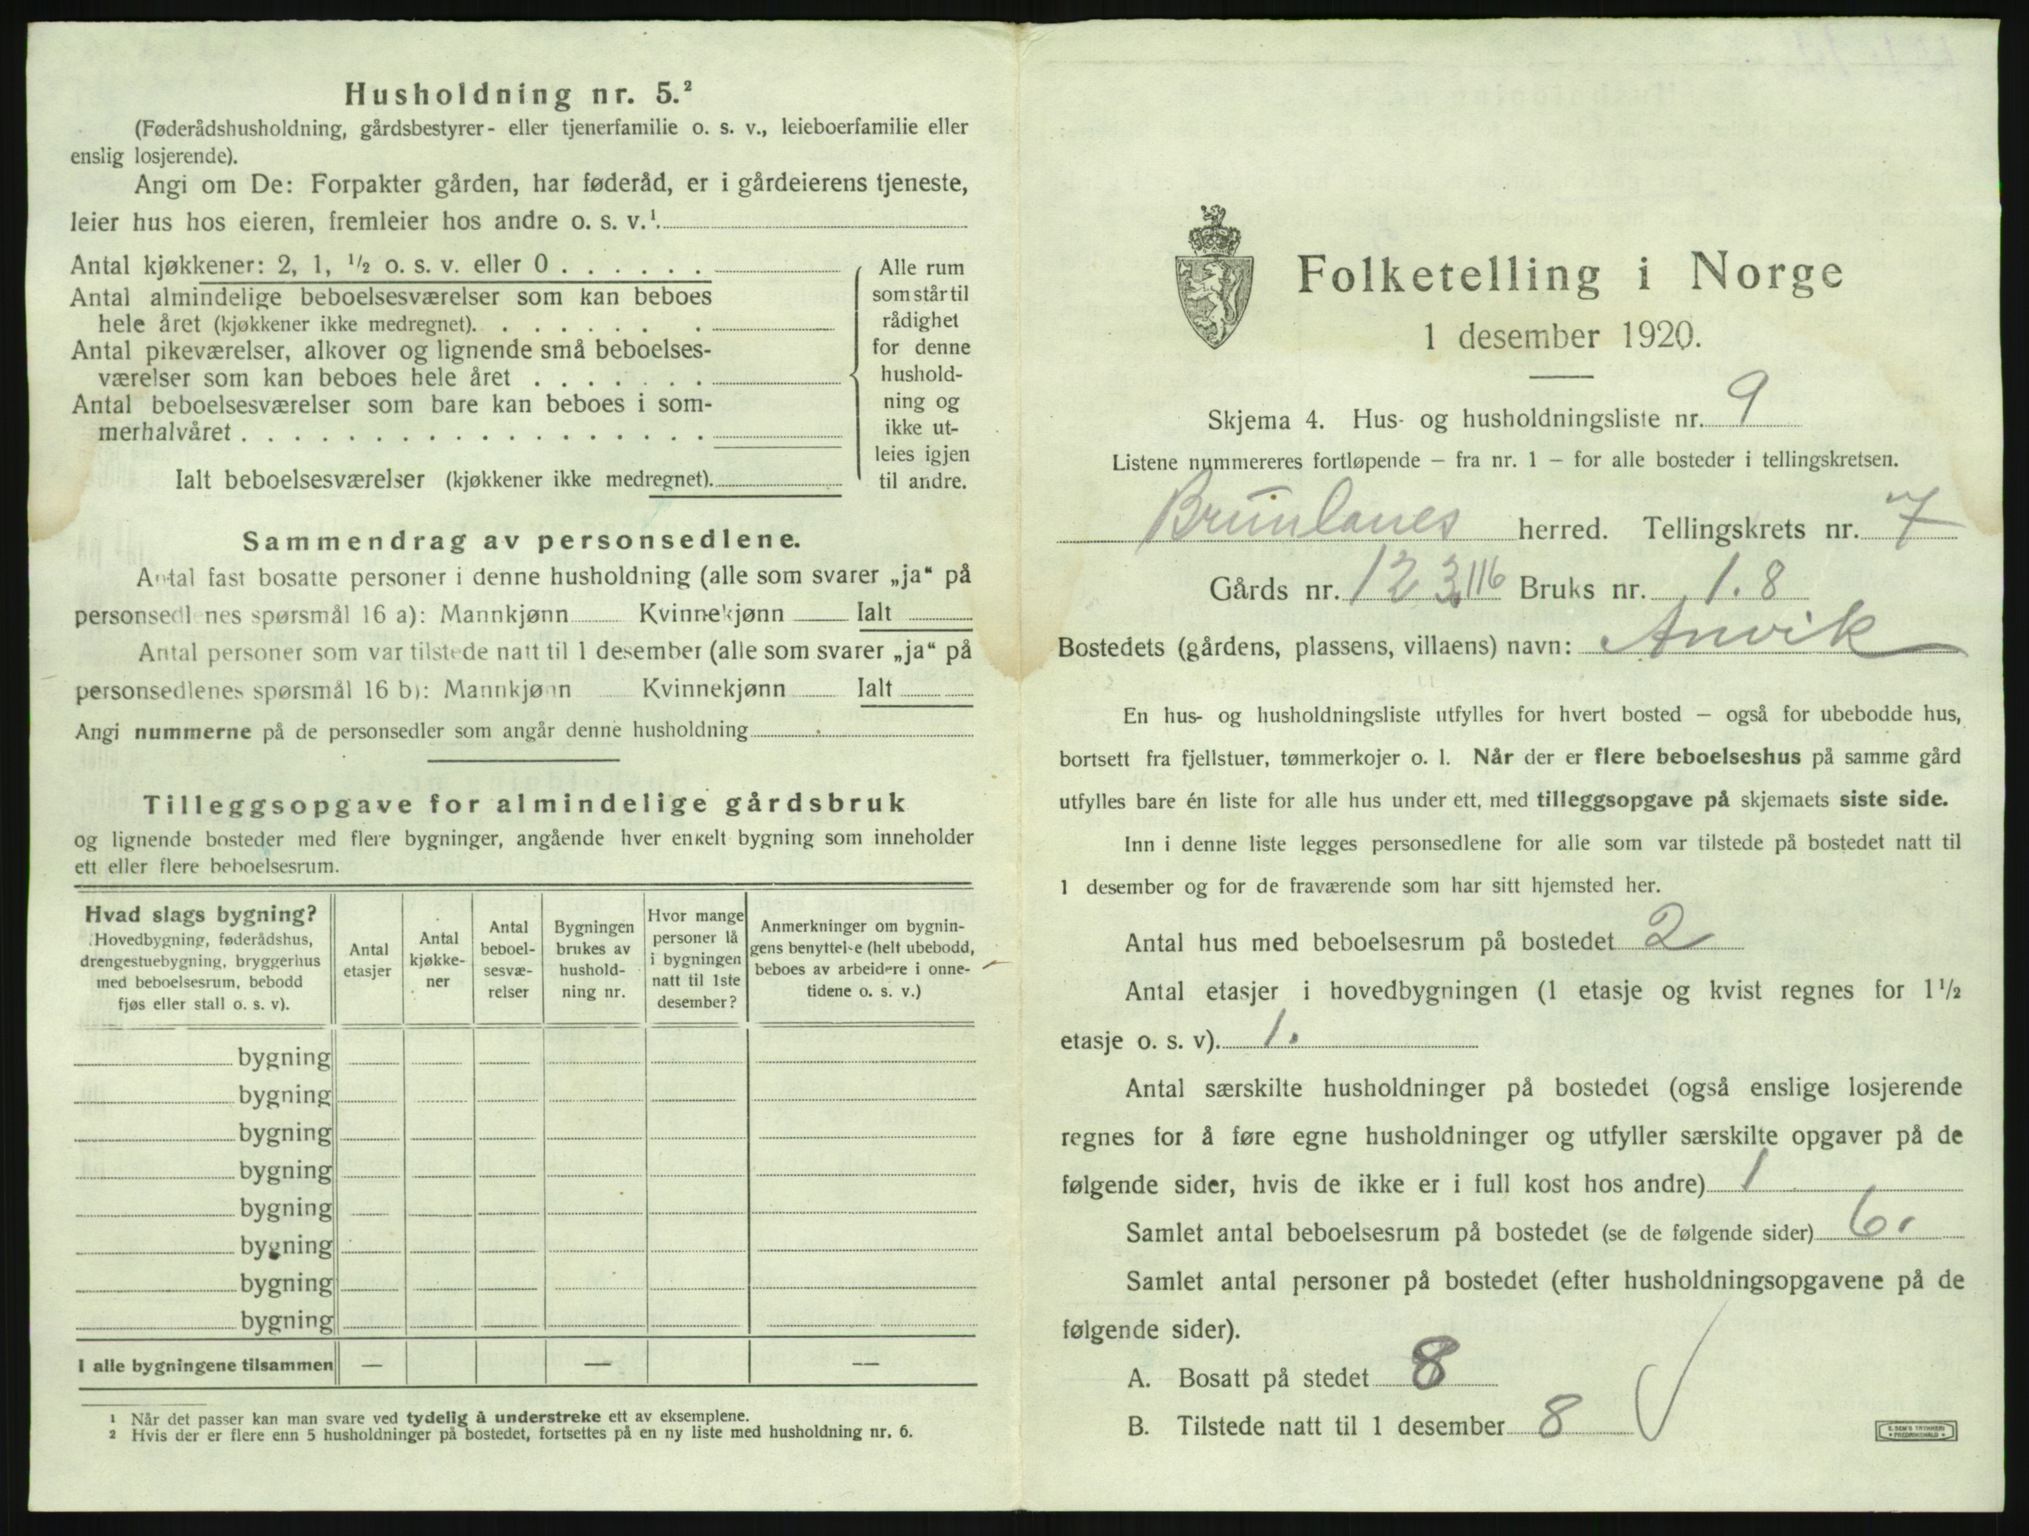 Husholdning nr. 5.²
(Føderådshusholdning, gårdsbestyrer- eller tjenerfamilie o. s. v., leieboerfamilie eller
enslig losjerende).
Angi om De: Forpakter gården, har føderåd, er i gårdeierens tjeneste,
leier hus hos eieren, fremleier hos andre o. s. v.¹.
Antal kjøkkener: 2, 1, ½ o. s. v. eller 0 . . . . . .
Antal almindelige beboelsesværelser som kan beboes
hele året (kjøkkener ikke medregnet). . . . . . . . .
Antal pikeværelser, alkover og lignende små beboelses-
værelser som kan beboes hele året . . . . . . .
Antal beboelsesværelser som bare kan beboes i som-
merhalvåret . . . . . . . . . . . . . . . . . .
Ialt beboelsesværelser (kjøkkener ikke medregnet).
Alle rum
som står til
rådighet
for denne
hushold-
ning og
ikke ut-
leies igjen
til andre.
Sammendrag av personsedlene.
Antal fast bosatte personer i denne husholdning (alle som svarer „ja“ på
personsedlenes spørsmål 16 a): Mannkjønn Kvinnekjønn Ialt
Antal personer som var tilstede natt til 1 desember (alle som svarer „ja“ på
personsedlenes spørsmål 16 b): Mannkjønn Kvinnekjønn Ialt
Angi nummerne på de personsedler som angår denne husholdning
Tilleggsopgave for almindelige gårdsbruk
og lignende bosteder med flere bygninger, angående hver enkelt bygning som inneholder
ett eller flere beboelsesrum.
Hvad slags bygning?
Hovedbygning, føderådshus,
drengestuebygning, bryggerhus
med beboelsesrum, bebodd
fjøs eller stall o. s. v).
Antal
etasjer
Antal
kjøkke-
ner
Antal
beboel-
sesvæ-
relser
Bygningen
brukes av
hushold-
ning nr.
Hvor mange
personer lå
i bygningen
natt til 1ste
desember?
Anmerkninger om bygnin-
gens benyttelse (helt ubebodd,
beboes av arbeidere i onne-
tidene o. s. v.)
bygning
bygning
bygning
bygning
bygning
bygning
bygning
bygning
I alle bygningene tilsammen — — —
¹ Når det passer kan man svare ved tydelig å understreke ett av eksemplene.
² Hvis der er flere enn 5 husholdninger på bostedet, fortsettes på en ny liste med husholdning nr. 6.
Folketelling i Norge
1 desember 1920.
Skjema 4. Hus- og husholdningsliste nr. 9
Listene nummereres fortløpende – fra nr. 1 – for alle bosteder i tellingskretsen.
Brunlanes herred. Tellingskrets nr. 7
Gårds nr. 123,116 Bruks nr. 1.8
Bostedets (gårdens, plassens, villaens) navn: Anvik
En hus- og husholdningsliste utfylles for hvert bosted – også for ubebodde hus,
bortsett fra fjellstuer, tømmerkojer o. l. Når der er flere beboelseshus på samme gård
utfylles bare én liste for alle hus under ett, med tilleggsopgave på skjemaets siste side.
Inn i denne liste legges personsedlene for alle som var tilstede på bostedet natt til
1 desember og for de fraværende som har sitt hjemsted her.
Antal hus med beboelsesrum på bostedet 2
Antal etasjer i hovedbygningen (1 etasje og kvist regnes for 1½
etasje o. s. v). 1.
Antal særskilte husholdninger på bostedet (også enslige losjerende
regnes for å føre egne husholdninger og utfyller særskilte opgaver på de
følgende sider, hvis de ikke er i full kost hos andre) 1
Samlet antal beboelsesrum på bostedet (se de følgende sider) 6.
Samlet antal personer på bostedet (efter husholdningsopgavene på de
følgende sider).
A. Bosatt på stedet 8
B. Tilstede natt til 1 desember 8